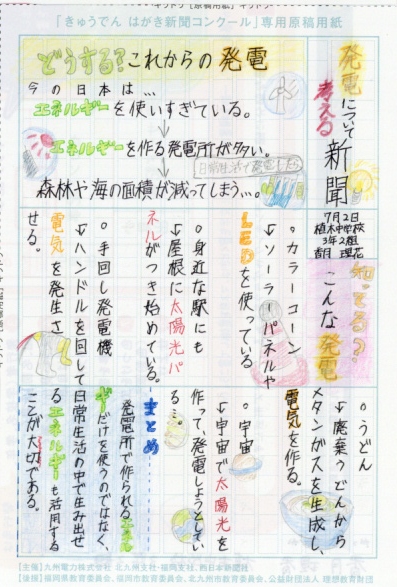 「きゅうでん はがき新聞コンクール」専用原稿用紙
発電について考える新聞
7月2日
植木中学校
3年2組
香月 理花
どうする?これからの発電
今の日本は…
エネルギーを使いすぎている。
エネルギーを作る発電所が多い。
日常生活で発電したら
森林や海の面積が減ってしまう…。
知ってる?
こんな発電
○カラーコーン
↓ソーラーパネルや
LEDを使っている
○身近な駅にも
↓屋根に太陽光パ
ネルがつき始めている。
○手回し発電機
↓ハンドルを回して
電気を発生さ
せる。
○うどん
↓廃棄うどんから
メタンガスを生成し、
電気を作る。
○宇宙
↓宇宙で太陽光を
作って、発電しようとしてい
る…。
まとめ
発電所で作られるエネル
ギーだけを使うのではなく、
日常生活の中で生み出せ
るエネルギーも活用する
ことが大切である。
[主催]九州電力株式会社 北九州支社・福岡支社、西日本新聞社
[後援]福岡県教育委員会、福岡市教育委員会、北九州市教育委員会、公益財団法人 理想教育財団